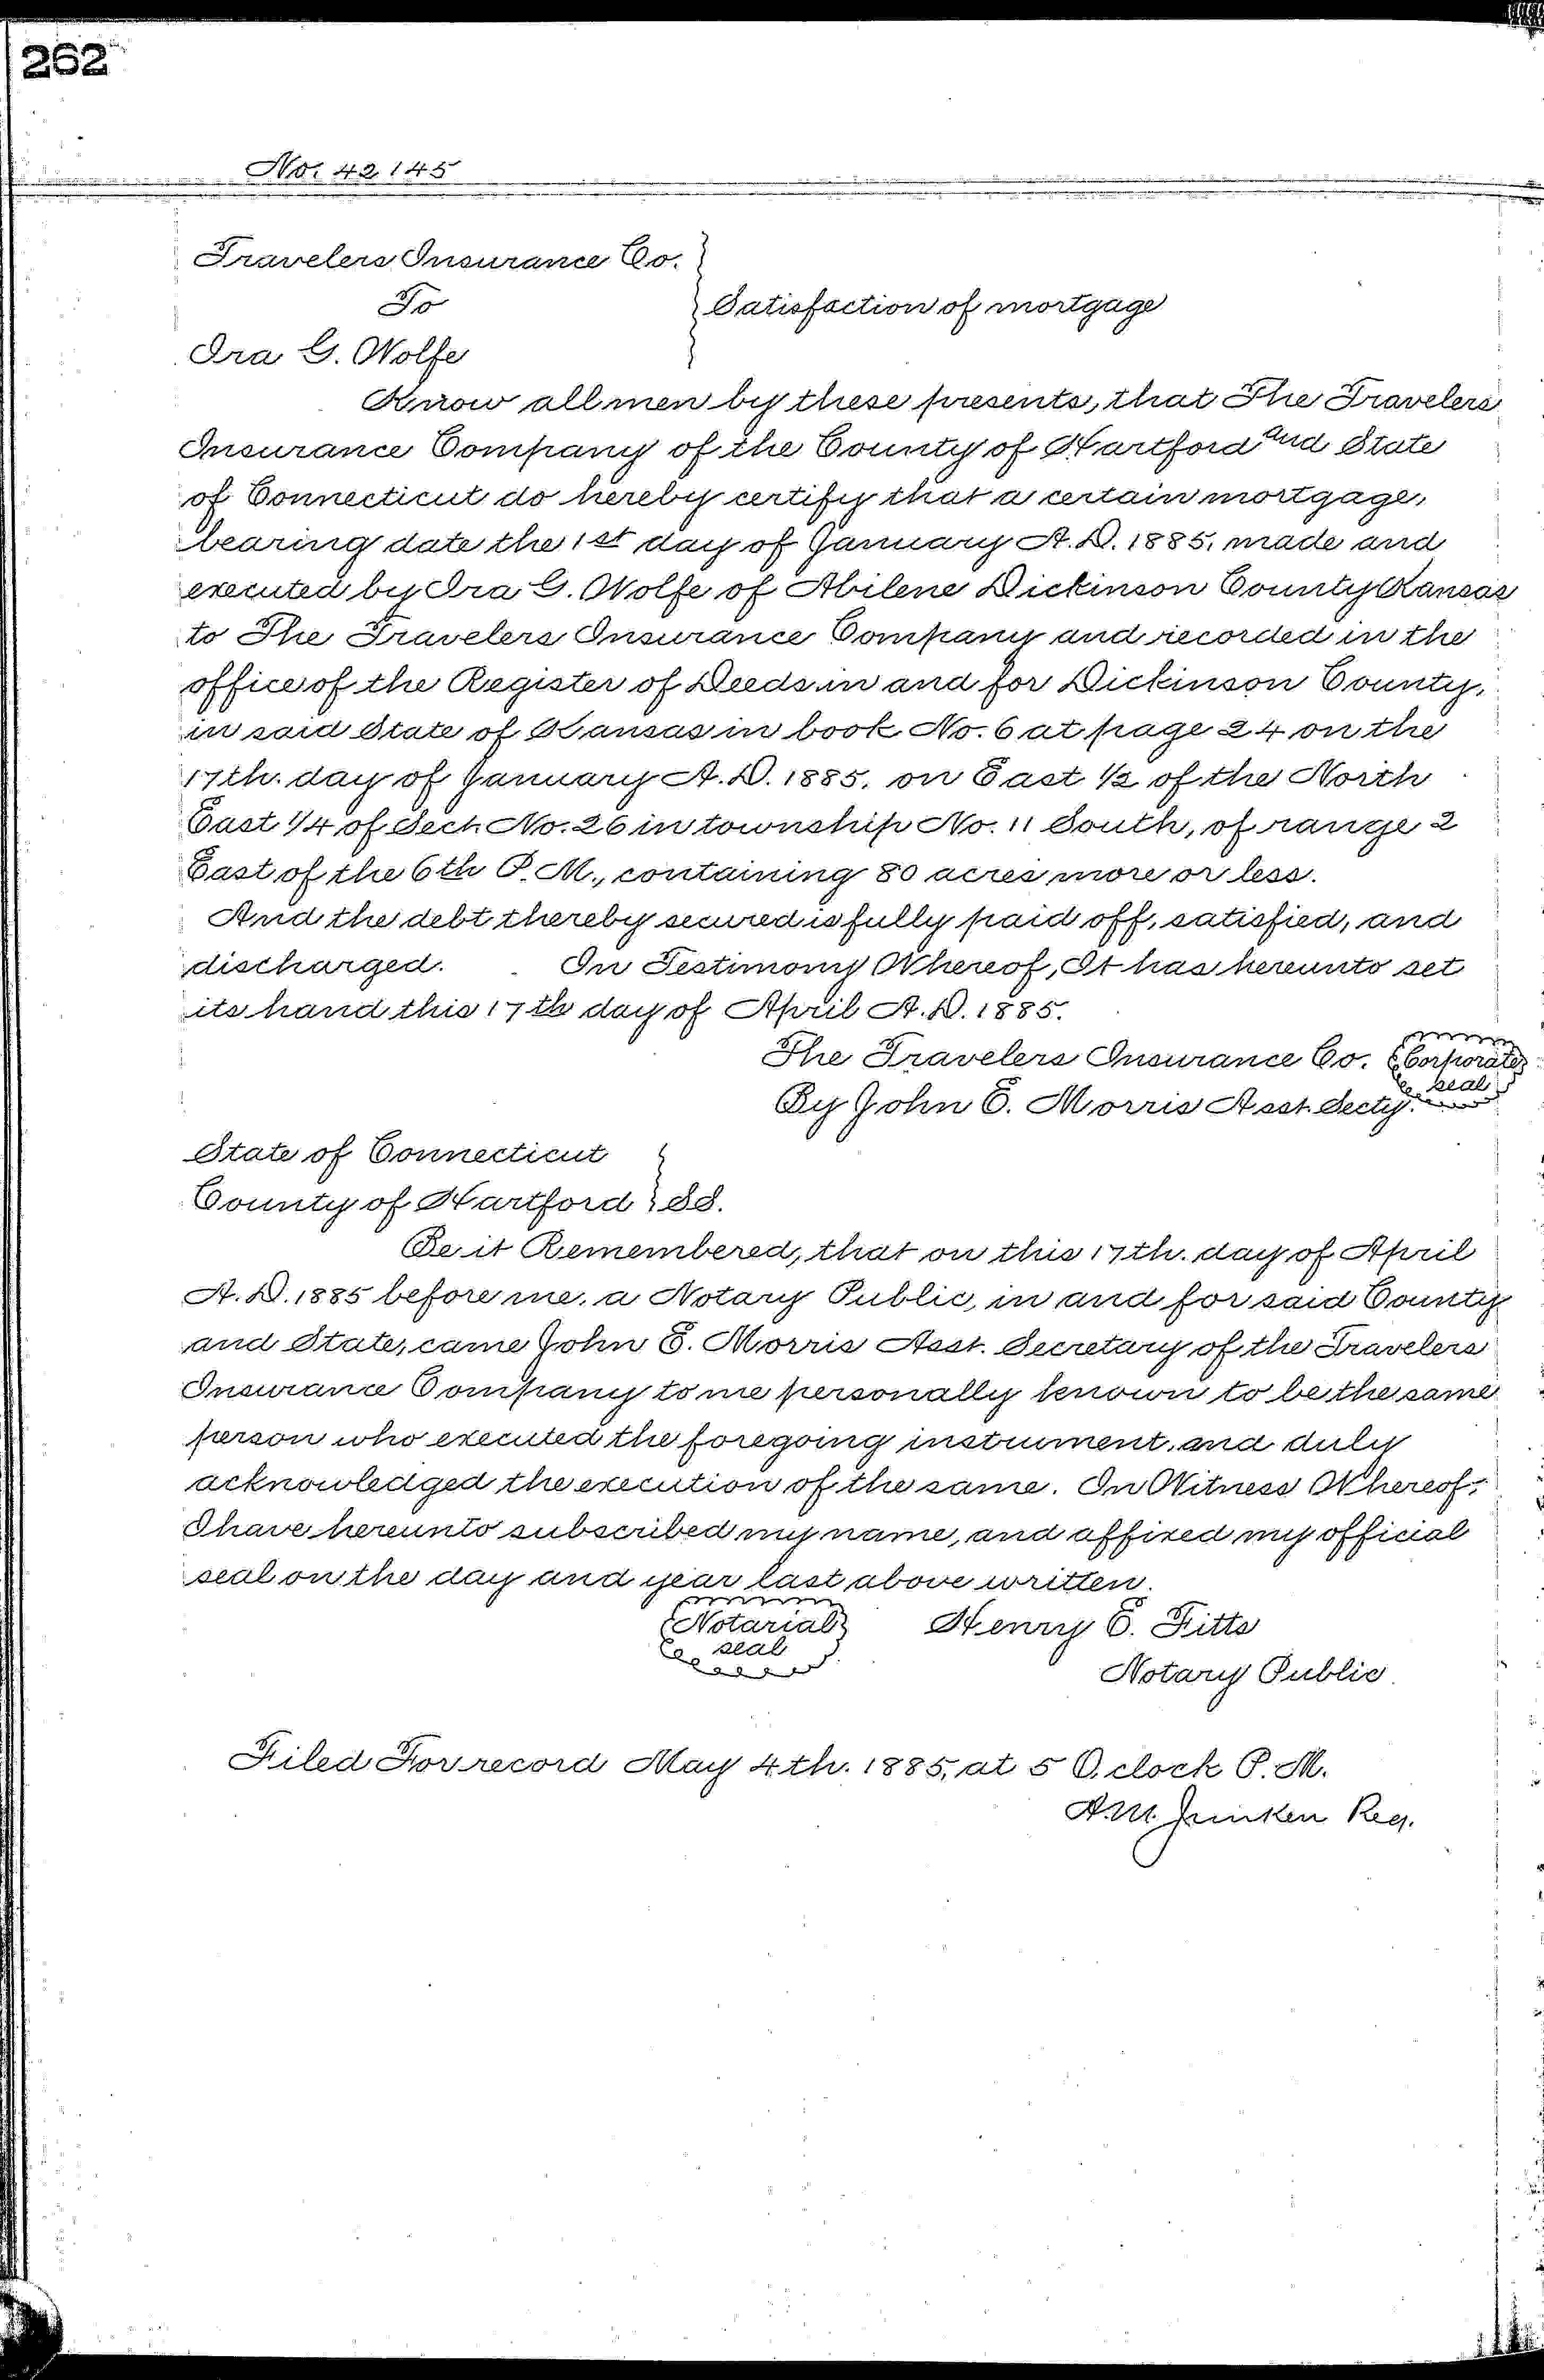 262
No. 42145
Travelers Insurance Co.
To
Satisfaction of mortgage
Ira G. Wolfe
Know all men by these presents, that The Travelers
Insurance Company of the County of Hartford and State
of Connecticut do hereby certify that a certain mortgage,
bearing date the 1st day of January A.D. 1885, made and
executed by Ira G. Wolfe of Abilene Dickinson County Kansas
to The Travelers Insurance Company and recorded in the
office of the Register of Deeds in and for Dickinson County,
in said State of Kansas in book No. 6 at page 24 on the
17th. day of January A.D. 1885, on East 1/2 of the North
East 1/4 of Sect. No. 26 in township No. 11 South, of range 2
East of the 6th P.M., containing 80 acres more or less.
And the debt thereby secured is fully paid off, satisfied, and
discharged. In Testimony Whereof, It has hereunto set
its hand this 17th day of April A.D. 1885.
The Travelers Insurance Co. Corporate
seal
By John E. Morris Asst. Secty.
State of Connecticut
County of Hartford SS.
Be it Remembered, that on this 17th. day of April
A.D. 1885 before me, a Notary Public, in and for said County
and State, came John E. Morris Asst. Secretary of the Travelers
Insurance Company to me personally known to be the same
person who executed the foregoing instrument, and duly
acknowledged the execution of the same. In Witness Whereof,
I have hereunto subscribed my name, and affixed my official
seal on the day and year last above written.
Notarial Henry E. Fitts
seal
Notary Public
Filed For record May 4th. 1885, at 5 O,clock P.M.
A.M. Junken Reg.